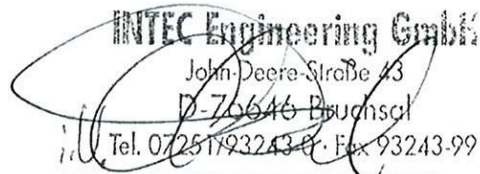 INTEC Engineering GmbH
John-Deere-Straße 43
D-76646 Bruchsal
Tel. 07251/93243-0 · Fax 93243-99